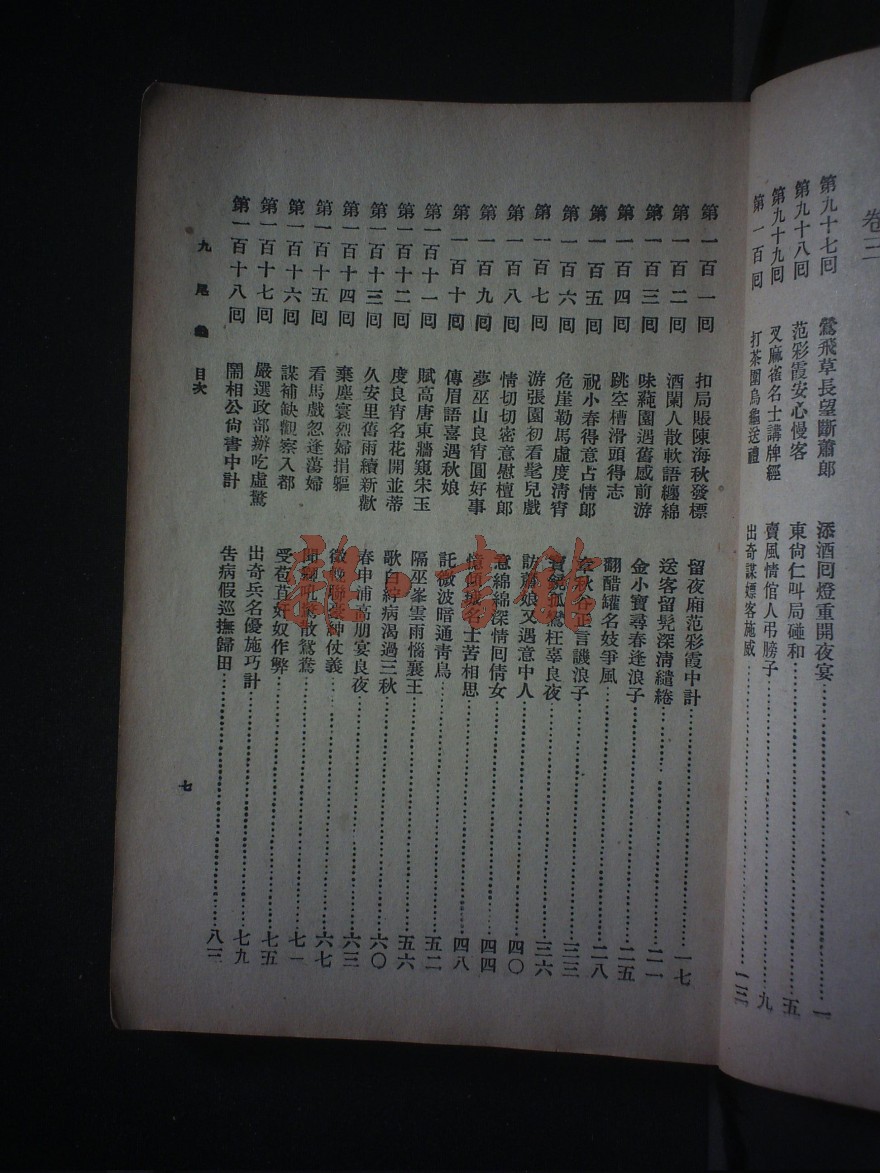 卷三
第九十七囘 鶯飛草長望斷蕭郎 添酒囘燈重開夜宴 一
第九十八囘 范彩霞安心慢客 東尙仁叫局碰和 五
第九十九囘 叉麻雀名士講牌經 賣風情倌人弔膀子 九
第一百囘 打茶圍烏龜送禮 出奇謀嫖客施威 一三
第一百一囘 扣局賬陳海秋發標 留夜廂范彩霞中計 一七
第一百二囘 酒闌人散軟語纏綿 送客留髠深情繾綣 二一
第一百三囘 味蒓園遇舊感前游 金小寶尋春逢浪子 二五
第一百四囘 跳空槽滑頭得志 翻醋罐名妓爭風 二八
第一百五囘 祝小春得意占情郎 章秋谷正言譏浪子 三三
第一百六囘 危崖勒馬虛度淸宵 寶鏡孤鸞枉辜良夜 三六
第一百七囘 游張園初看髦兒戲 訪蕭娘又遇意中人 四〇
第一百八囘 情切切密意慰檀郎 意綿綿深情囘倩女 四四
第一百九囘 夢巫山良宵圓好事 憶 名士苦相思 四八
第一百十囘 傳眉語喜遇秋娘 託微波暗通靑鳥 五二
第一百十一囘 賦高唐東牆窺宋玉 隔巫峯雲雨惱襄王 五六
第一百十二囘 度良宵名花開並蒂 歌白紵病渴過三秋 六〇
第一百十三囘 久安里舊雨續新歡 春申浦高朋宴良夜 六三
第一百十四囘 棄塵寰烈婦捐軀 徵 聯 紳仗義 六七
第一百十五囘 看馬戲忽逢蕩婦 聞 散鴛鴦 七一
第一百十六囘 謀補缺觀察入都 受苞苴奸奴作弊 七五
第一百十七囘 嚴選政部辦吃虛驚 出奇兵名優施巧計 七九
第一百十八囘 鬧相公尙書中計 告病假巡撫歸田 八三
九尾龜 目次
七
書館